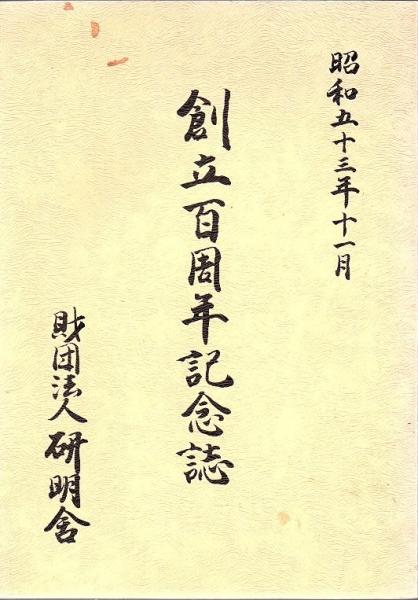 昭和五十三年十一月
創立百周年記念誌
財団法人研明舎